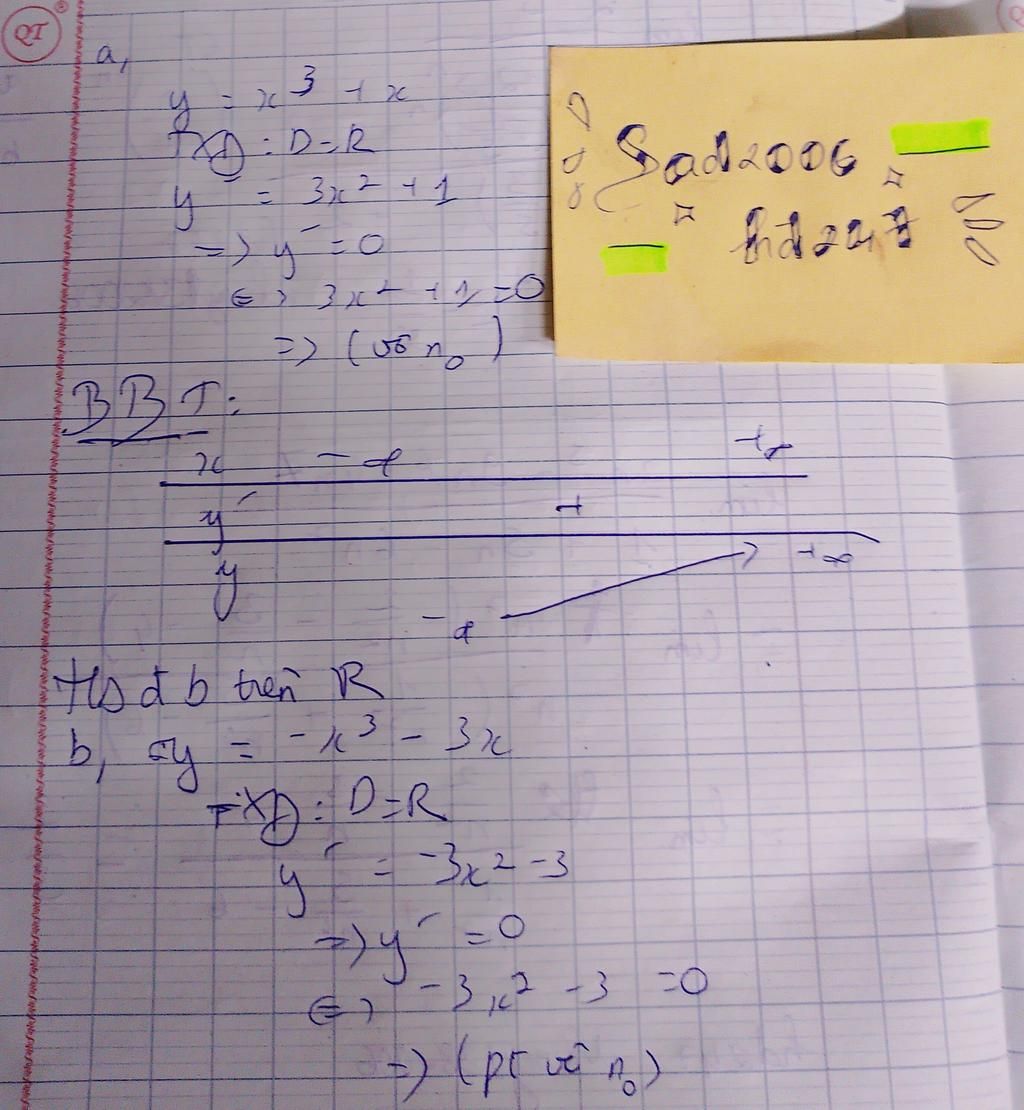 QI
a,
y = x³ + x
TXĐ : D = R
y' = 3x² + 1
=> y' = 0
<=> 3x² + 1 = 0
=> (vô n₀)
BBT:
x -∞ +∞
y' +
y +∞
-∞
Hs đb trên R
b, y = -x³ - 3x
TXĐ : D = R
y' = -3x² - 3
=> y' = 0
<=> -3x² - 3 = 0
=> (pt vô n₀)
Sad2006
hd247